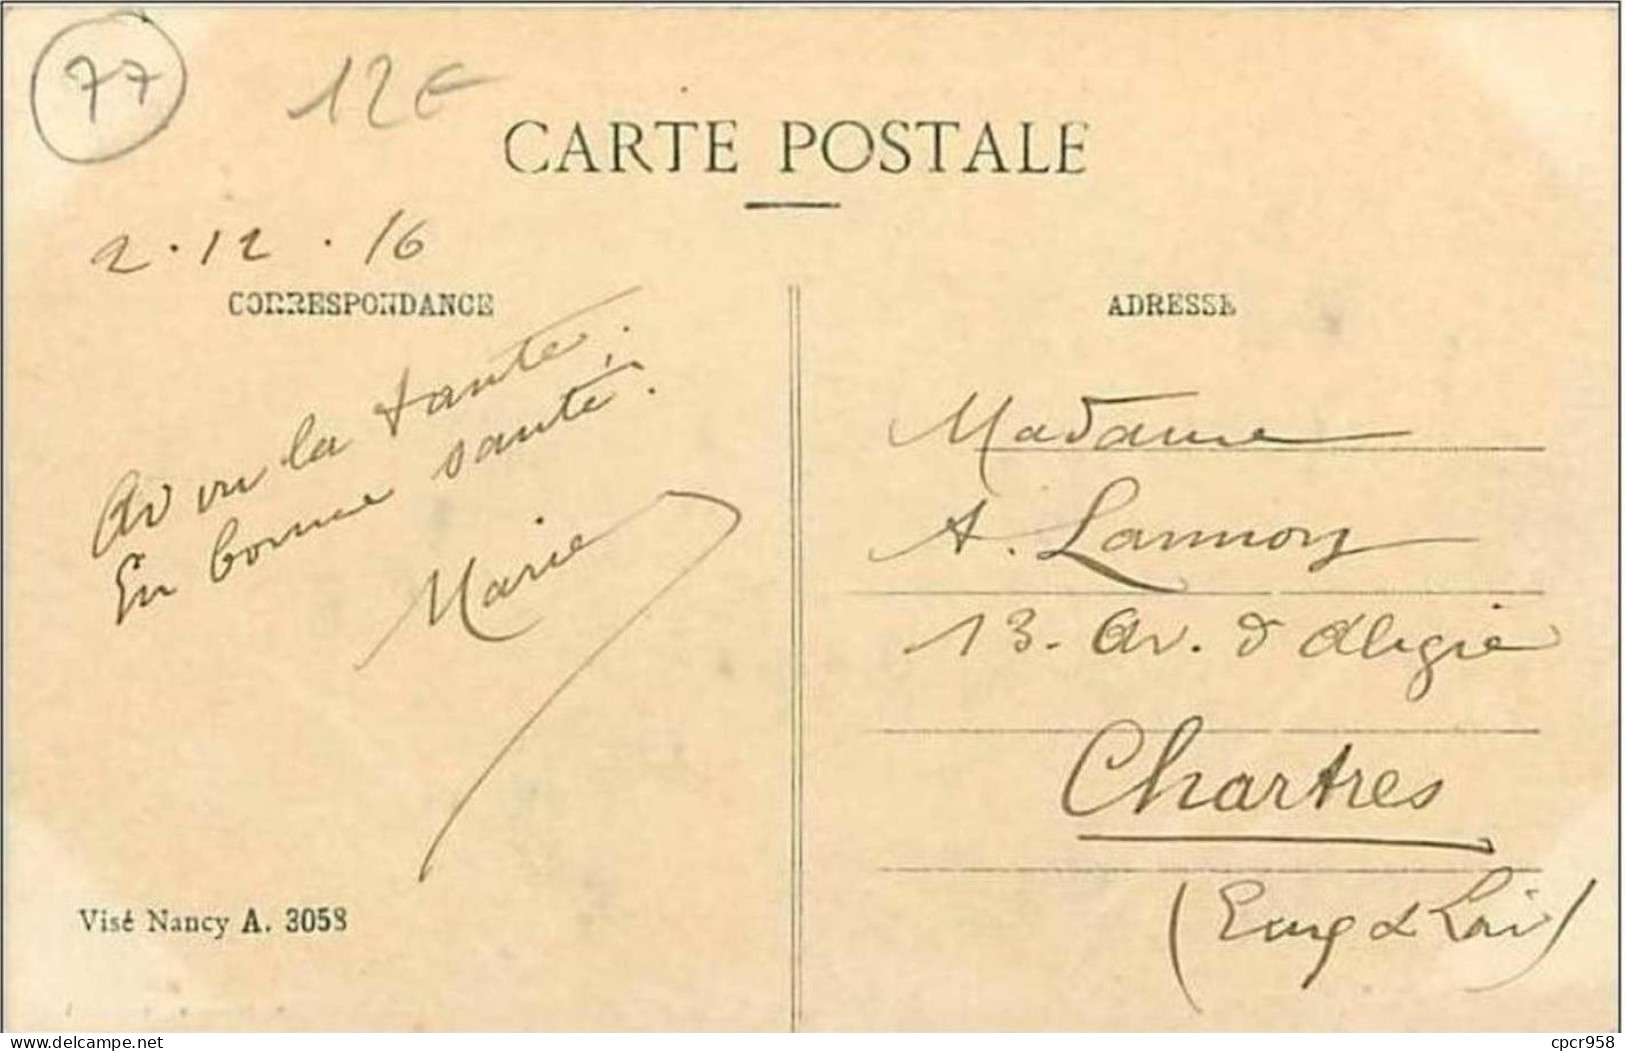 77
12€
CARTE POSTALE
2.12.16
CORRESPONDANCE
Av vu la tante.
En bonne santé.
Marie
Visé Nancy A. 3058
ADRESSE
Madame
A. Lannoy
13. Av. d'Aligre
Chartres
(Eure & Loir)
cpcr958